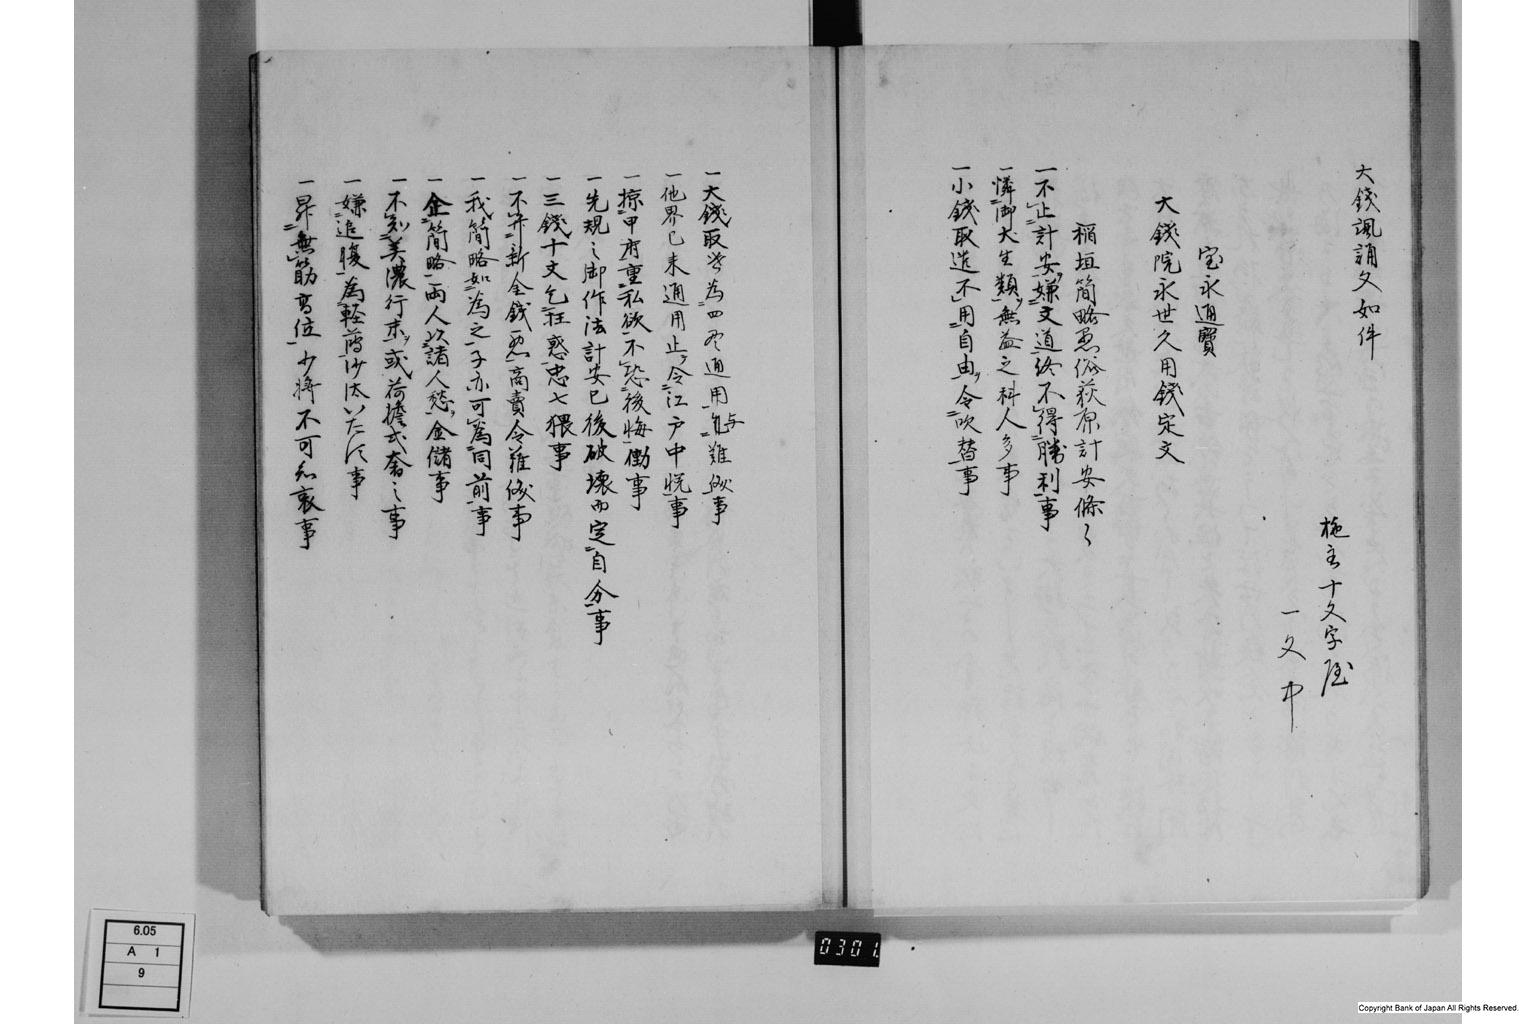 大銭諷誦文如件
施主十文字屋
一文中
宝永通寳
大銭院永世久用銭定文
稲垣簡略愚俗荻原計安條々
一不止計安嫌文道終不得勝利事
一憐御犬生類無益之科人多事
一小銭取造不用自由令吹替事
一大銭取 為四 通用 与難 事
一他界已来通用止令江戸中悦事
一掠甲府重私欲不恐後悔働事
一先規之御作法計安已後破壊而定自分事
一三銭十文乞狂惑忠七猥事
一不弁新金銭悪高賣令難儀事
一我簡略如為之子亦可為同前事
一企簡略両人以諸人愁金儲事
一不知美濃行末或荷擔或奢之事
一嫌追腹為軽薄沙汰いたす事
一昇無筋高位少将不可知衰事
6.05
A 1
9
0301
Copyright Bank of Japan All Rights Reserved.